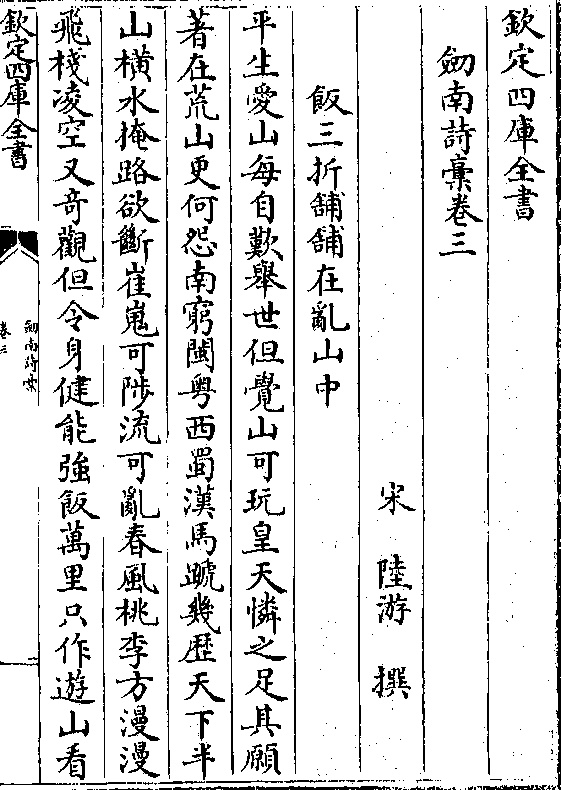 欽定四庫全書
劒南詩稾卷三
宋 陸游 撰
飯三折舖舖在亂山中
平生愛山每自歎舉世但覺山可玩皇天憐之足其願
著在荒山更何怨南窮閩粤西蜀漢馬蹏幾歴天下半
山横水掩路欲斷崔嵬可陟流可亂春風桃李方漫漫
飛棧凌空又奇觀但令身健能強飯萬里只作遊山看
欽定四庫全書
劒南詩稾
卷三
一